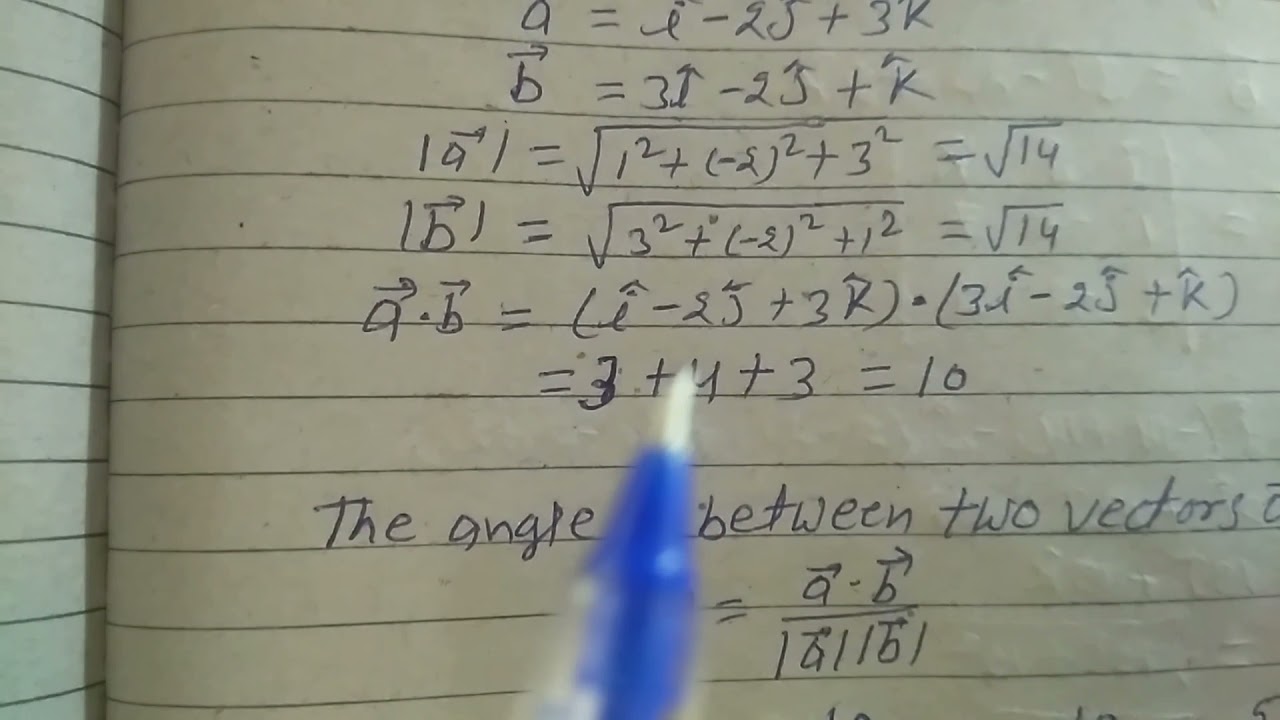 a = î - 2ĵ + 3k
b⃗ = 3î - 2ĵ + k̂
|a⃗| = √1² + (-2)² + 3² = √14
|b⃗| = √3² + (-2)² + 1² = √14
a⃗ · b⃗ = (î - 2ĵ + 3k̂) · (3î - 2ĵ + k̂)
= 3 + 4 + 3 = 10
The angle between two vectors
= a⃗ · b⃗
|a⃗| |b⃗|